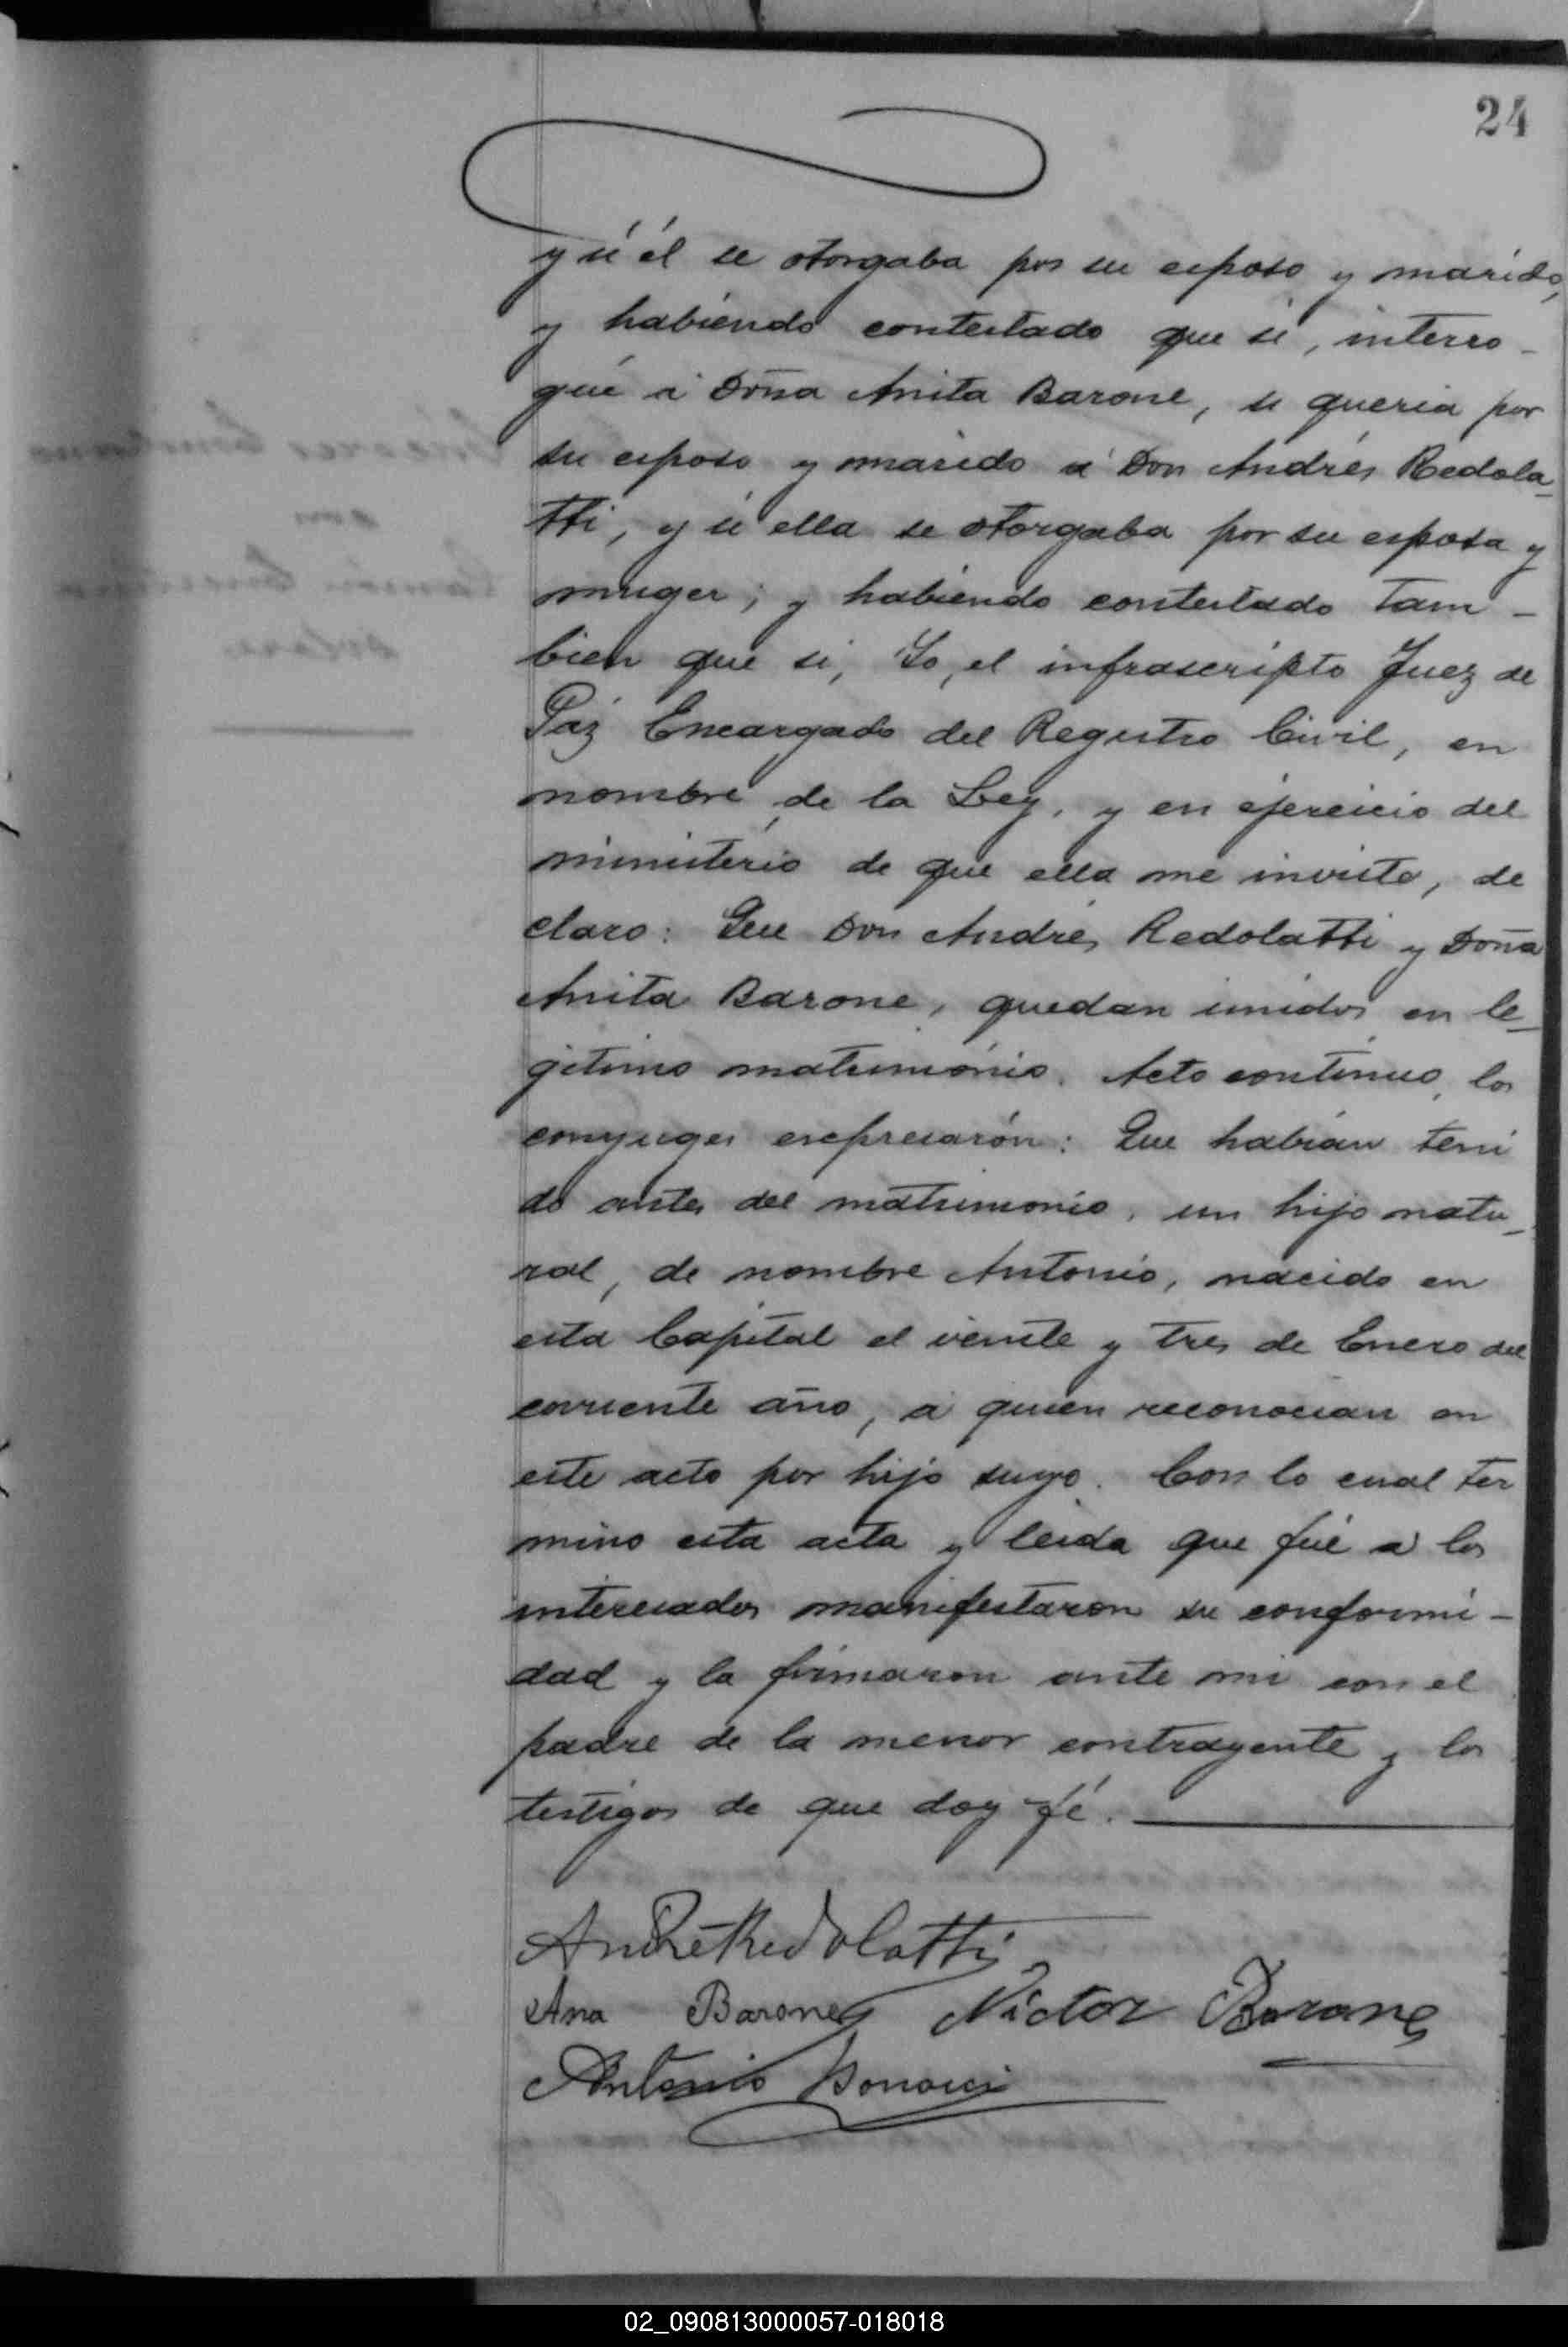 24
y si él se otorgaba por su esposo y marido,
y habiendo contestado que si, interro-
gué á Doña Anita Barone, si queria por
su esposo y marido á Don Andrés Redola-
tti, y si ella se otorgaba por su esposa y
muger; y habiendo contestado tam-
bien que si, Yo, el infrascripto Juez de
Páz Encargado del Registro Civil, en
nombre de la Ley, y en ejercicio del
ministerio de que ella me inviste, de
claro: Que Don Andrés Redolatti y Doña
Anita Barone, quedan unidos en le-
gitimo matrimónio. Acto continuo, los
conyuges espresarón: Que habian teni
do antes del matrimonio, un hijo natu-
ral, de nombre Antonio, nacido en
esta Capital el veinte y tres de Enero del
corriente año, á quien reconocian en
este acto por hijo suyo. Con lo cual ter
mino esta acta y leida que fué á los
interesados manifestaron su conformi-
dad y la firmaron ante mi con el
padre de la menor contrayente y los
testigos de que doy fé.
André Redolatti
Ana Barone Victor Barone
Antonio
02_090813000057-018018